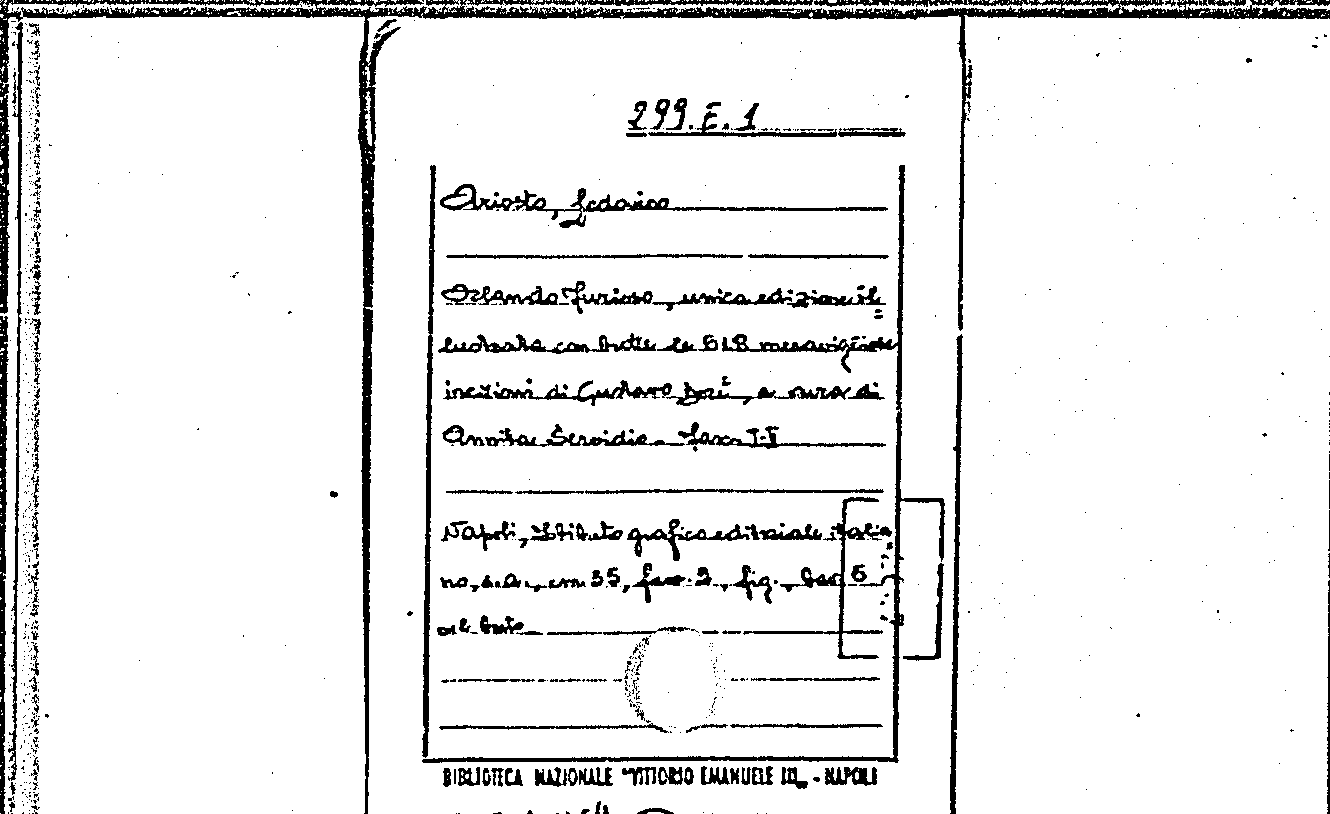 299.E.1
Ariosto, Ledovico
Orlando Furioso, unica edizione il=
lustrata con tutte le 618 meravigliose
incisioni di Gustavo Doré, a cura di
Annita Servidio. fasc. I-I
Napoli, Istituto grafico editoriale italia
no, s.a., cm. 35, fasc. 2, fig., tav. 6
BIBLIOTECA NAZIONALE "VITTORIO EMANUELE III" - NAPOLI